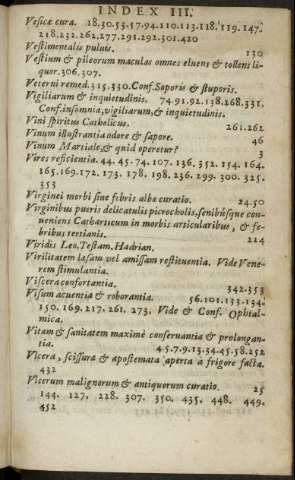 INDEX III.
Vesicæ cura. 18.30.53.57.94.110.113.118.119.147.
218.232.262.277.291.292.301.420
Vestimentalis puluis. 130
Vestium & pileorum maculas omnes eluens & tollens li-
quor. 306.307.
Veterni remed. 315.330. Conf. Soporis & stuporis.
Vigiliarum & inquietudinis. 74.91.92.138.268.331.
Conf. insomnia, vigiliarum, & inquietudinis.
Vini spiritus Catholicus. 261.262
Vinum illustrantia odore & sapore. 46
Vinum Martiale, & quid operetur? 3
Vires reficientia. 44.45.74.107.136.352.154.164.
165.169.172.173.178.198.236.299.300.325.
353
Virginei morbi sine febris albæ curatio. 24.50
Virginibus pueris delicatulis picrocholis, senibúsque con-
ueniens Catharticum in morbis articularibus, & fe-
bribus tertianis. 214
Viridis Leo, Testam. Hadrian.
Virilitatem læsam vel amissam restituentia. Vide Vene-
rem stimulantia.
Viscera confortantia. 342.353
Visum acuentia & roborantia. 56.101.133.134.
150.169.217.261.273. Vide & Conf. Ophtal-
mica.
Vitam & sanitatem maximè conseruantia & prolongan-
tia. 45.7.9.13.34.45.58.252
Vlcera, scissuræ & apostemata aperta à frigore facta.
432
Vlcerum malignorum & antiquorum curatio. 25
144. 127. 228. 307. 350. 435. 448. 449.
452